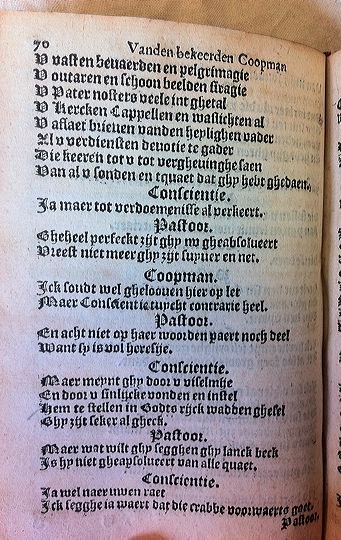 70 Vanden bekeerden Coopman
V vasten bevaerden en pelgrimagie
V outaren en schoon beelden stagie
V Pater nosters veele int ghetal
V Kercken Cappellen en waslichten al
V aflaet brieven vanden heylighen vader
Al v verdiensten devotie te gader
Die keeren tot v tot vergheuinghe saen
Van al v sonden en tquaet dat ghy hebt ghedaen.
Conscientie.
Ja maer tot verdoemenisse al verkeert.
Pastoor.
Gheheel perfeckt zijt ghy nu gheabsolueert
Vreest niet meer ghy zijt suyuer en net.
Coopman.
Jck soudt wel ghelooven hier op let
Maer Conscientie tuycht contrarie heel.
Pastoor.
En acht niet op haer woorden paert noch deel
Want sy is vol heresije.
Conscientie.
Maer meynt ghy door v viselmije
En door v sinlijcke vonden en instel
Hem te stellen in Godts rijck wadden ghesel
Ghy zijt seker al gheck.
Pastoor.
Maer wat wilt ghy segghen ghy lanck beck
Js hy niet gheapsolueert van alle quaet.
Conscientie.
Ja wel naer uwen raet
Jck segghe ia waert dat die crabbe voorwaerts gaet.
Pastoor.